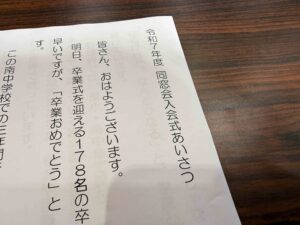 令和７年度　同窓会入会式あいさつ
皆さん、おはようございます。
明日、卒業式を迎える１７８名の卒
早いですが、「卒業おめでとう」と
す。
この南中学校での三年間を